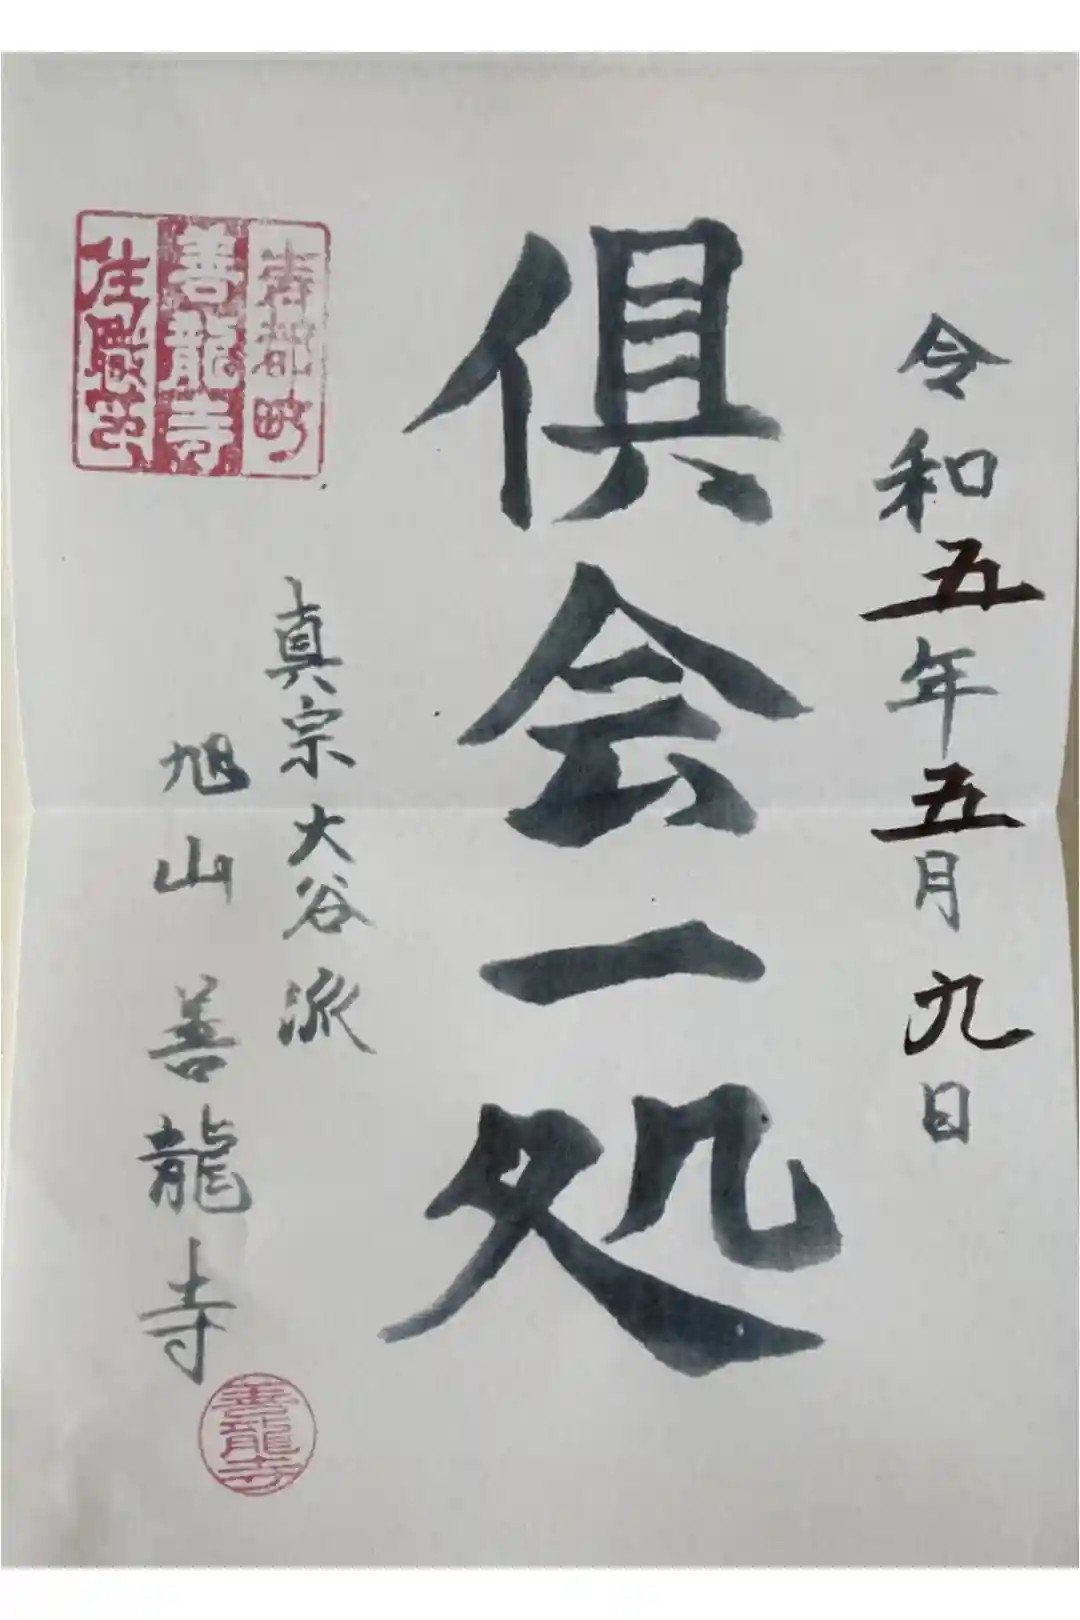 令和五年五月九日
俱会一処
真宗大谷派
旭山 善龍寺
寿都町
善龍寺
住職印
善龍寺